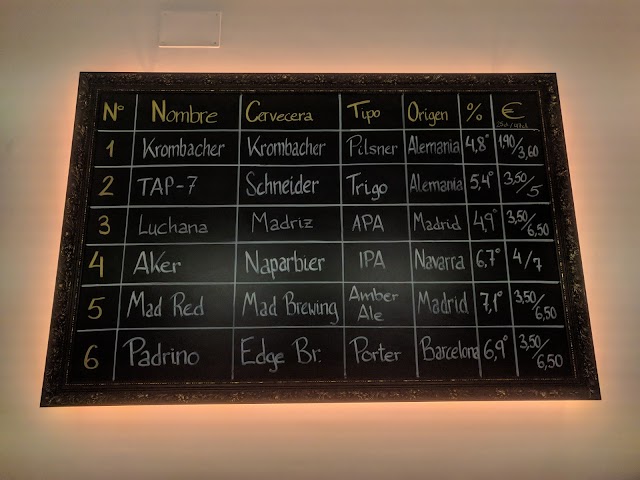 Nº Nombre Cervecera Tipo Origen % €
1 Krombacher Krombacher Pilsner Alemania 4,8º 1,90/3,60
2 TAP-7 Schneider Trigo Alemania 5,4º 3,50/5
3 Luchana Madriz APA Madrid 4,9º 3,50/6,50
4 Aker Naparbier IPA Navarra 6,7º 4/7
5 Mad Red Mad Brewing Amber Ale Madrid 7,1º 3,50/6,50
6 Padrino Edge Br: Porter Barcelona 6,9º 3,50/6,50